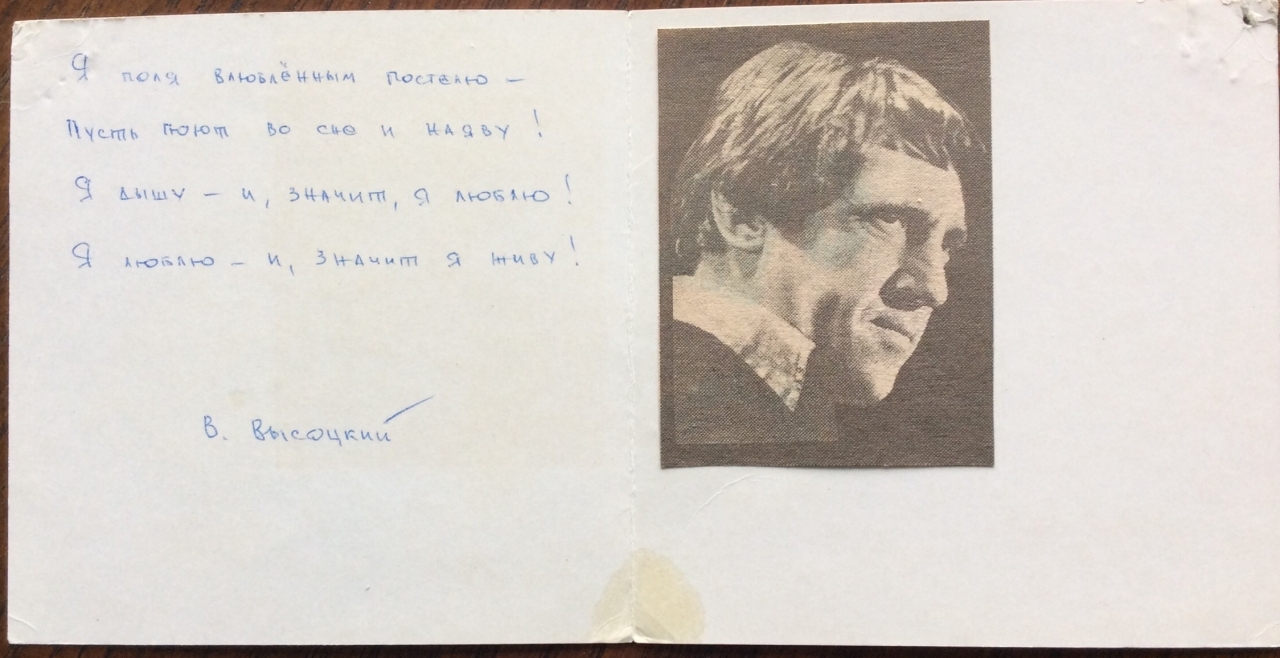 Я поля влюблённым постелю –
Пусть поют во сне и наяву!
Я дышу – и, значит, я люблю!
Я люблю – и, значит я живу!
В. Высоцкий